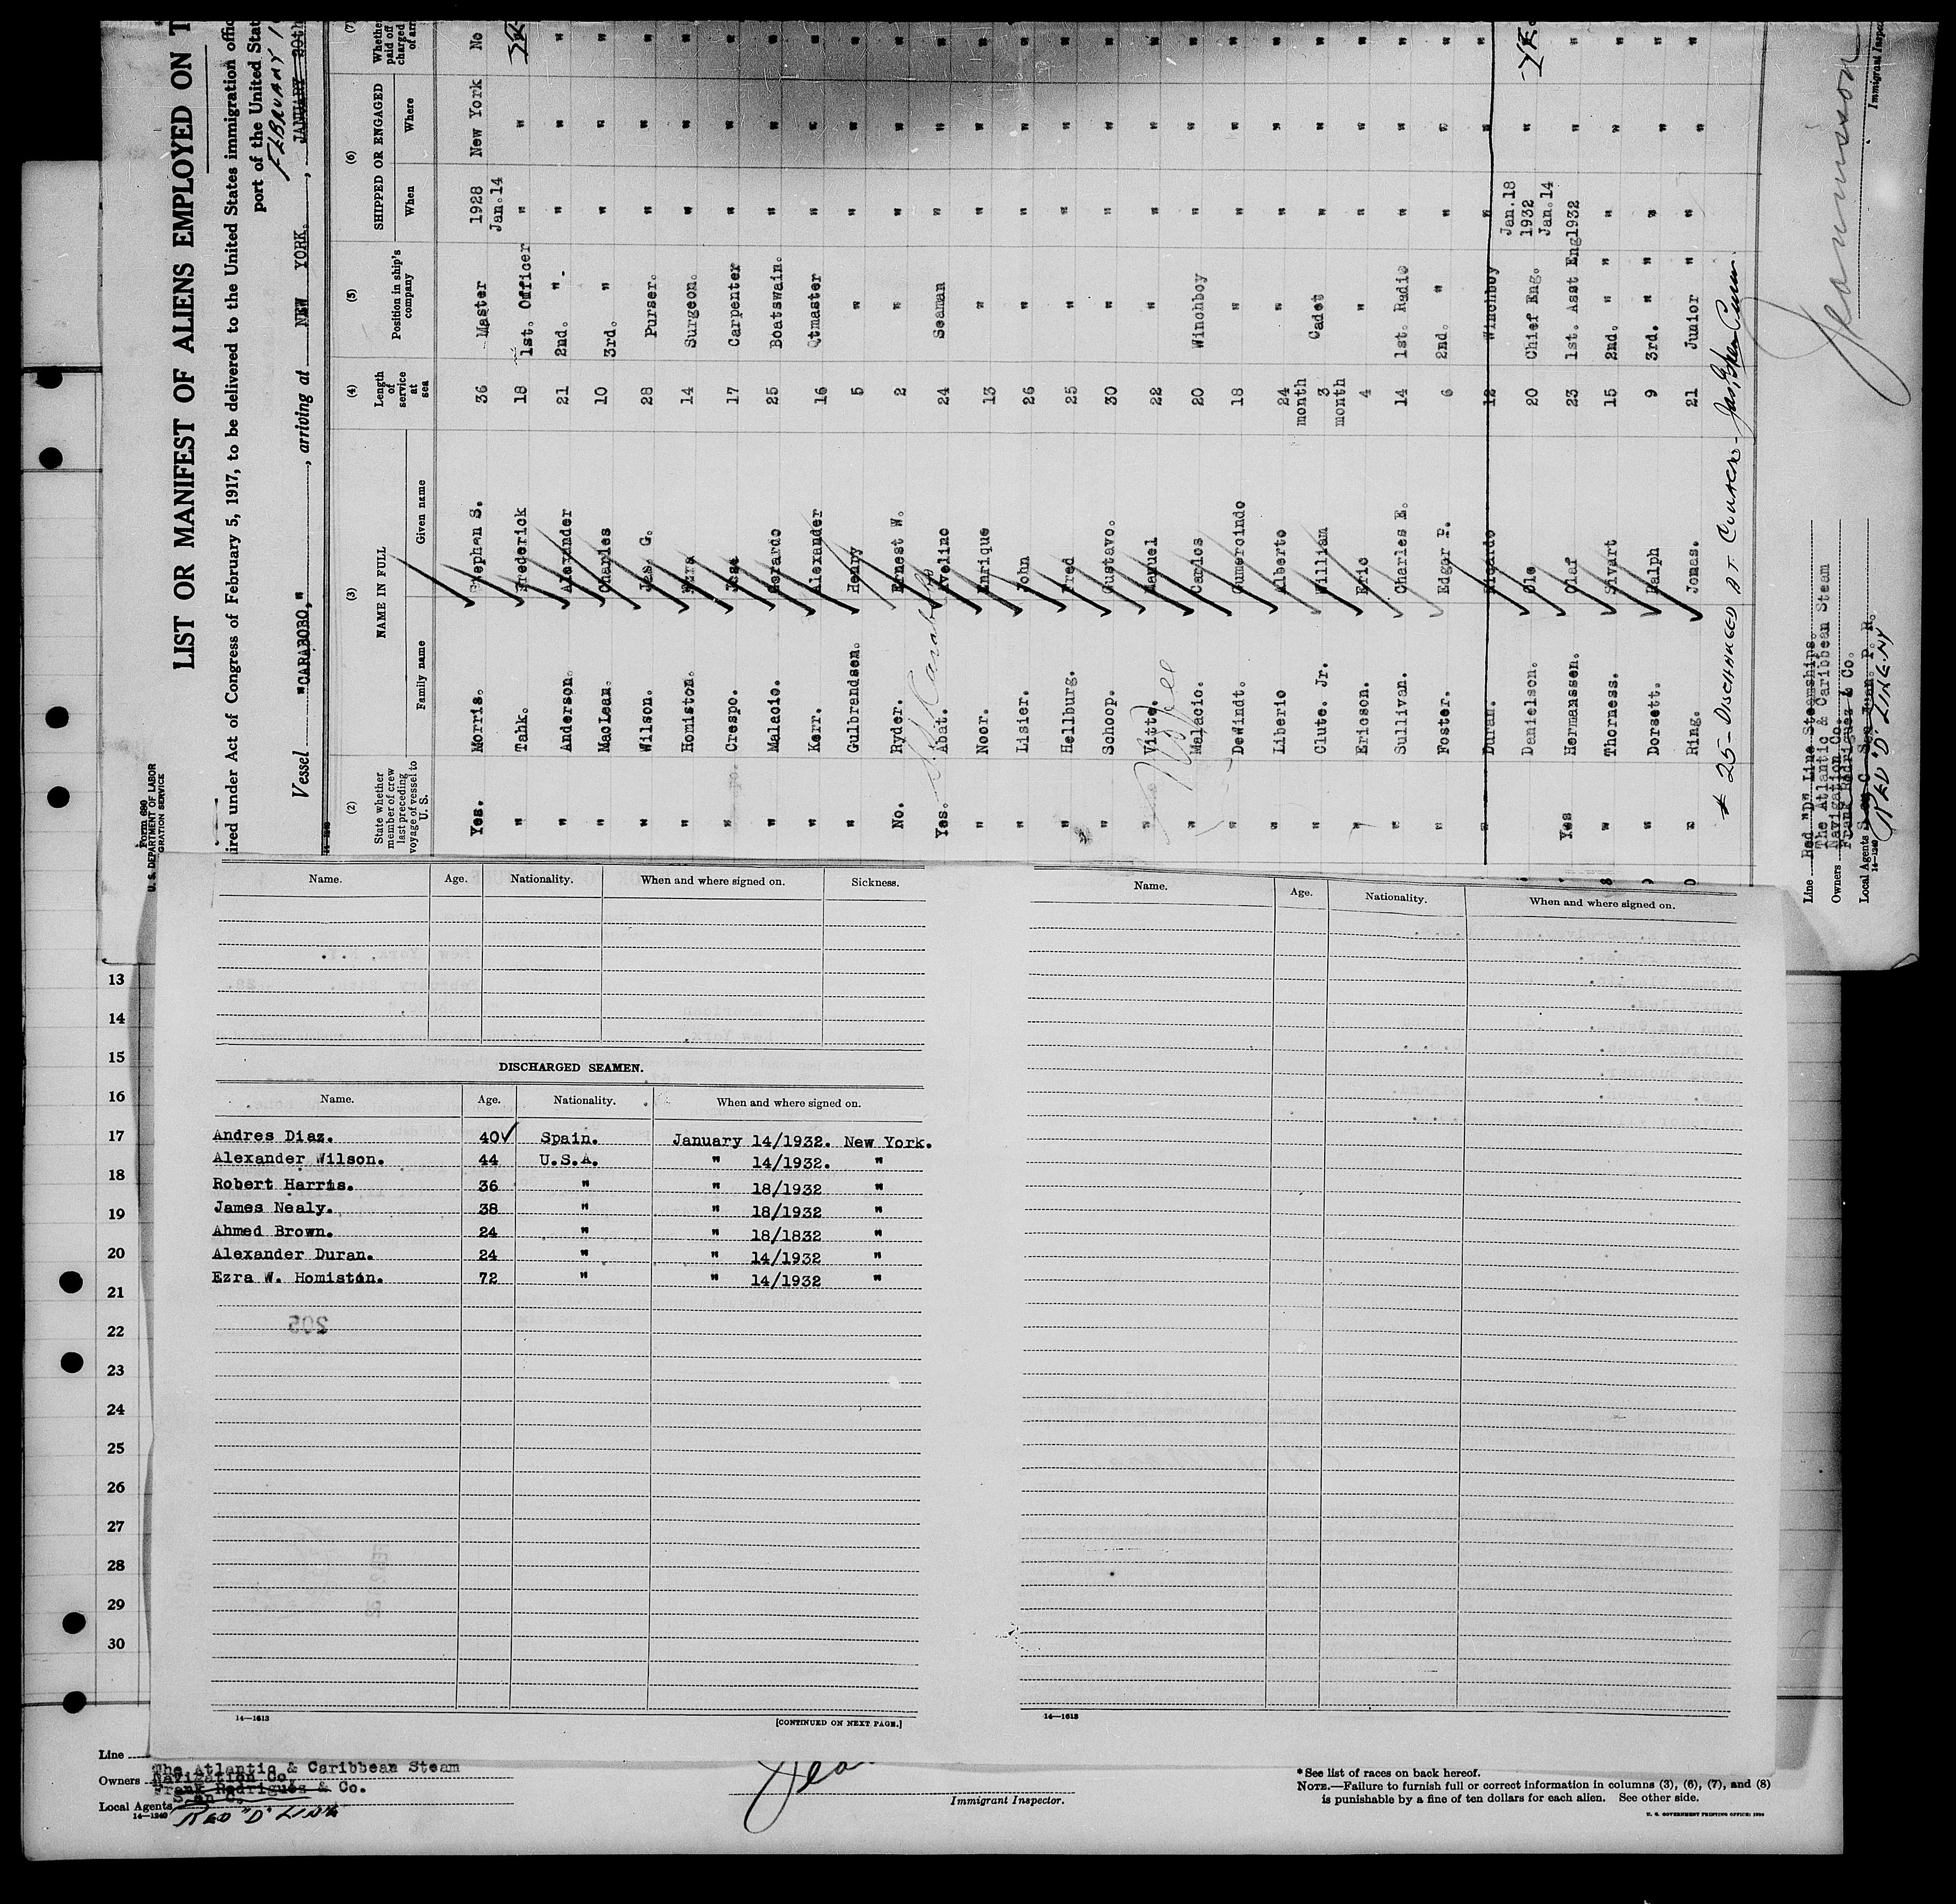 LIST OR MANIFEST OF ALIENS EMPLOYED ON T
ired under Act of Congress of February 5, 1917, to be delivered to the United States immigration offic
port of the United Stat
FEBRUARY 1
Vessel "CARABOBO," , arriving at NEW YORK. , JANUARY 29th
Form 680
U. S. DEPARTMENT OF LABOR
GRATION SERVICE
(2) (3) (4) (5) (6) (7)
State whether member of crew last preceding voyage of vessel to U. S.
NAME IN FULL
Family name Given name
Length of service at sea
Position in ship's company
SHIPPED OR ENGAGED
When Where
Yes. Morris. Stephen S. 36 Master 1928 Jan.14 New York No
" Tahk. Frederick 18 1st. Officer " "
" Anderson. Alexander 21 2nd. " " " "
" MacLean. Charles 10 3rd. " " " "
" Wilson. Jas. G. 28 Purser. " " "
" Homiston. Ezra 14 Surgeon. " " "
" Crespo. Jose 17 Carpenter " " "
" Malacio. Gerardo 25 Boatswain. " " "
" Kerr. Alexander 16 Qtmaster " " "
" Gulbrandsen. Henry 5 " " " "
No. Ryder. Ernest W. 2 " " " "
Yes. Abat. Avelino 24 Seaman " " "
" Noor. Enrique 13 " " " "
" Lisier. John 26 " " " "
" Hellburg. Fred 25 " " " "
" Schoop. Gustavo. 30 " " " "
" Vitto. Manuel 22 " " " "
" Malacio. Carlos 20 Winchboy " " "
" DeWindt. Gumercindo 18 " " " "
" Liberio Alberto 24 month " " " "
" Clute. Jr. William 3 month Cadet " " "
" Ericson. Eric 4 " " " "
" Sullivan. Charles E. 14 1st. Radio " " "
" Foster. Edgar P. 6 2nd. " " " "
" Duran. Ricardo 12 Winchboy " " "
Danielson. Ole 20 Chief Eng. Jan.18 1932 "
Yes Hermanssen. Olaf 23 1st. Asst Eng Jan.14 1932 " "
" Thorness. Sivart 15 2nd. " " " " "
" Dorsett. Ralph 9 3rd. " " " "
" Ring. Jonas. 21 Junior " " " "
# 25 - DISCHARGED AT
Immigrant Inspe
Line Red "D" Line Steamships.
Owners The Atlantic & Caribbean Steam
Navigation Co.
Frank Rodriguez & Co.
Local Agents San Juan. P. R.
RED "D" LINE NY
14—1240
Name. Age. Nationality. When and where signed on. Sickness.
DISCHARGED SEAMEN.
Name. Age. Nationality. When and where signed on.
Andres Diaz. 40 ✓ Spain. January 14/1932. New York.
Alexander Wilson. 44 U.S.A. " 14/1932. "
Robert Harris. 36 " " 18/1932 "
James Nealy. 38 " " 18/1932 "
Ahmed Brown. 24 " " 18/1832 "
Alexander Duran. 24 " " 14/1932 "
Ezra W. Homiston. 72 " " 14/1932 "
205
14—1613
[CONTINUED ON NEXT PAGE.]
Name. Age. Nationality. When and where signed on.
14—1613
13
14
15
16
17
18
19
20
21
22
23
24
25
26
27
28
29
30
Line
Owners The Atlantic & Caribbean Steam
Navigation Co.
Frank Rodrigués & Co.
Local Agents
14—1240
RED "D" LINE
Immigrant Inspector.
* See list of races on back hereof.
NOTE.—Failure to furnish full or correct information in columns (3), (6), (7), and (8)
is punishable by a fine of ten dollars for each alien. See other side.
U. S. GOVERNMENT PRINTING OFFICE: